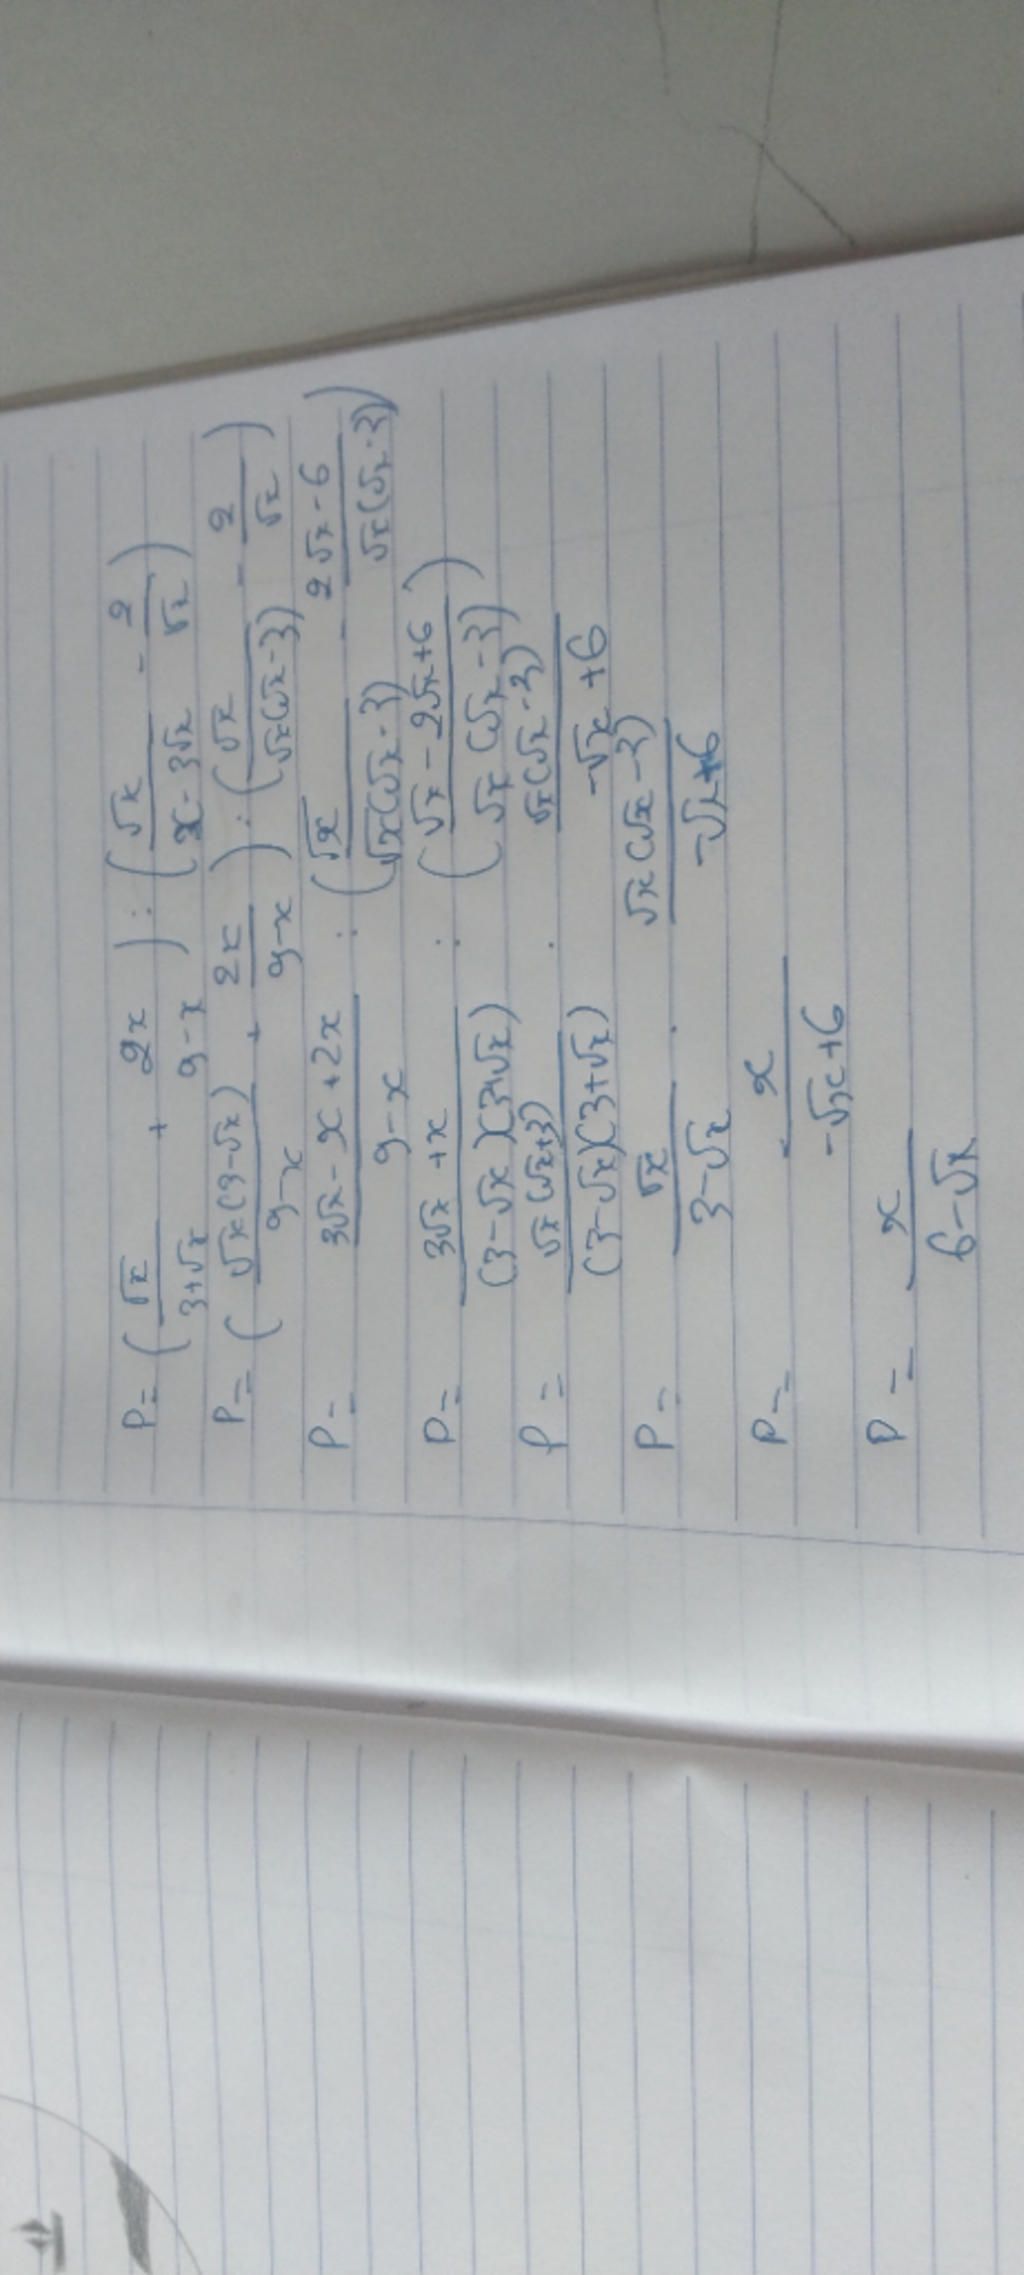 P = (√x/(3+√x) + 2x/(9-x)) : (√x/(x-3√x) - 2/√x)
P = (√x(3-√x)/(9-x) + 2x/(9-x)) : (√x/(√x(√x-3)) - 2/√x)
P = (3√x - x + 2x)/(9-x) : (√x/(√x(√x-3)) - (2√x-6)/(√x(√x-3)))
P = (3√x + x)/((3-√x)(3+√x)) : ((√x-2√x+6)/(√x(√x-3)))
P = √x(√x+3)/((3-√x)(3+√x)) . √x(√x-3)/(-√x+6)
P = √x/(3-√x) . √x(√x-3)/(-√x+6)
P = - x/(-√x+6)
P = - x/(6-√x)